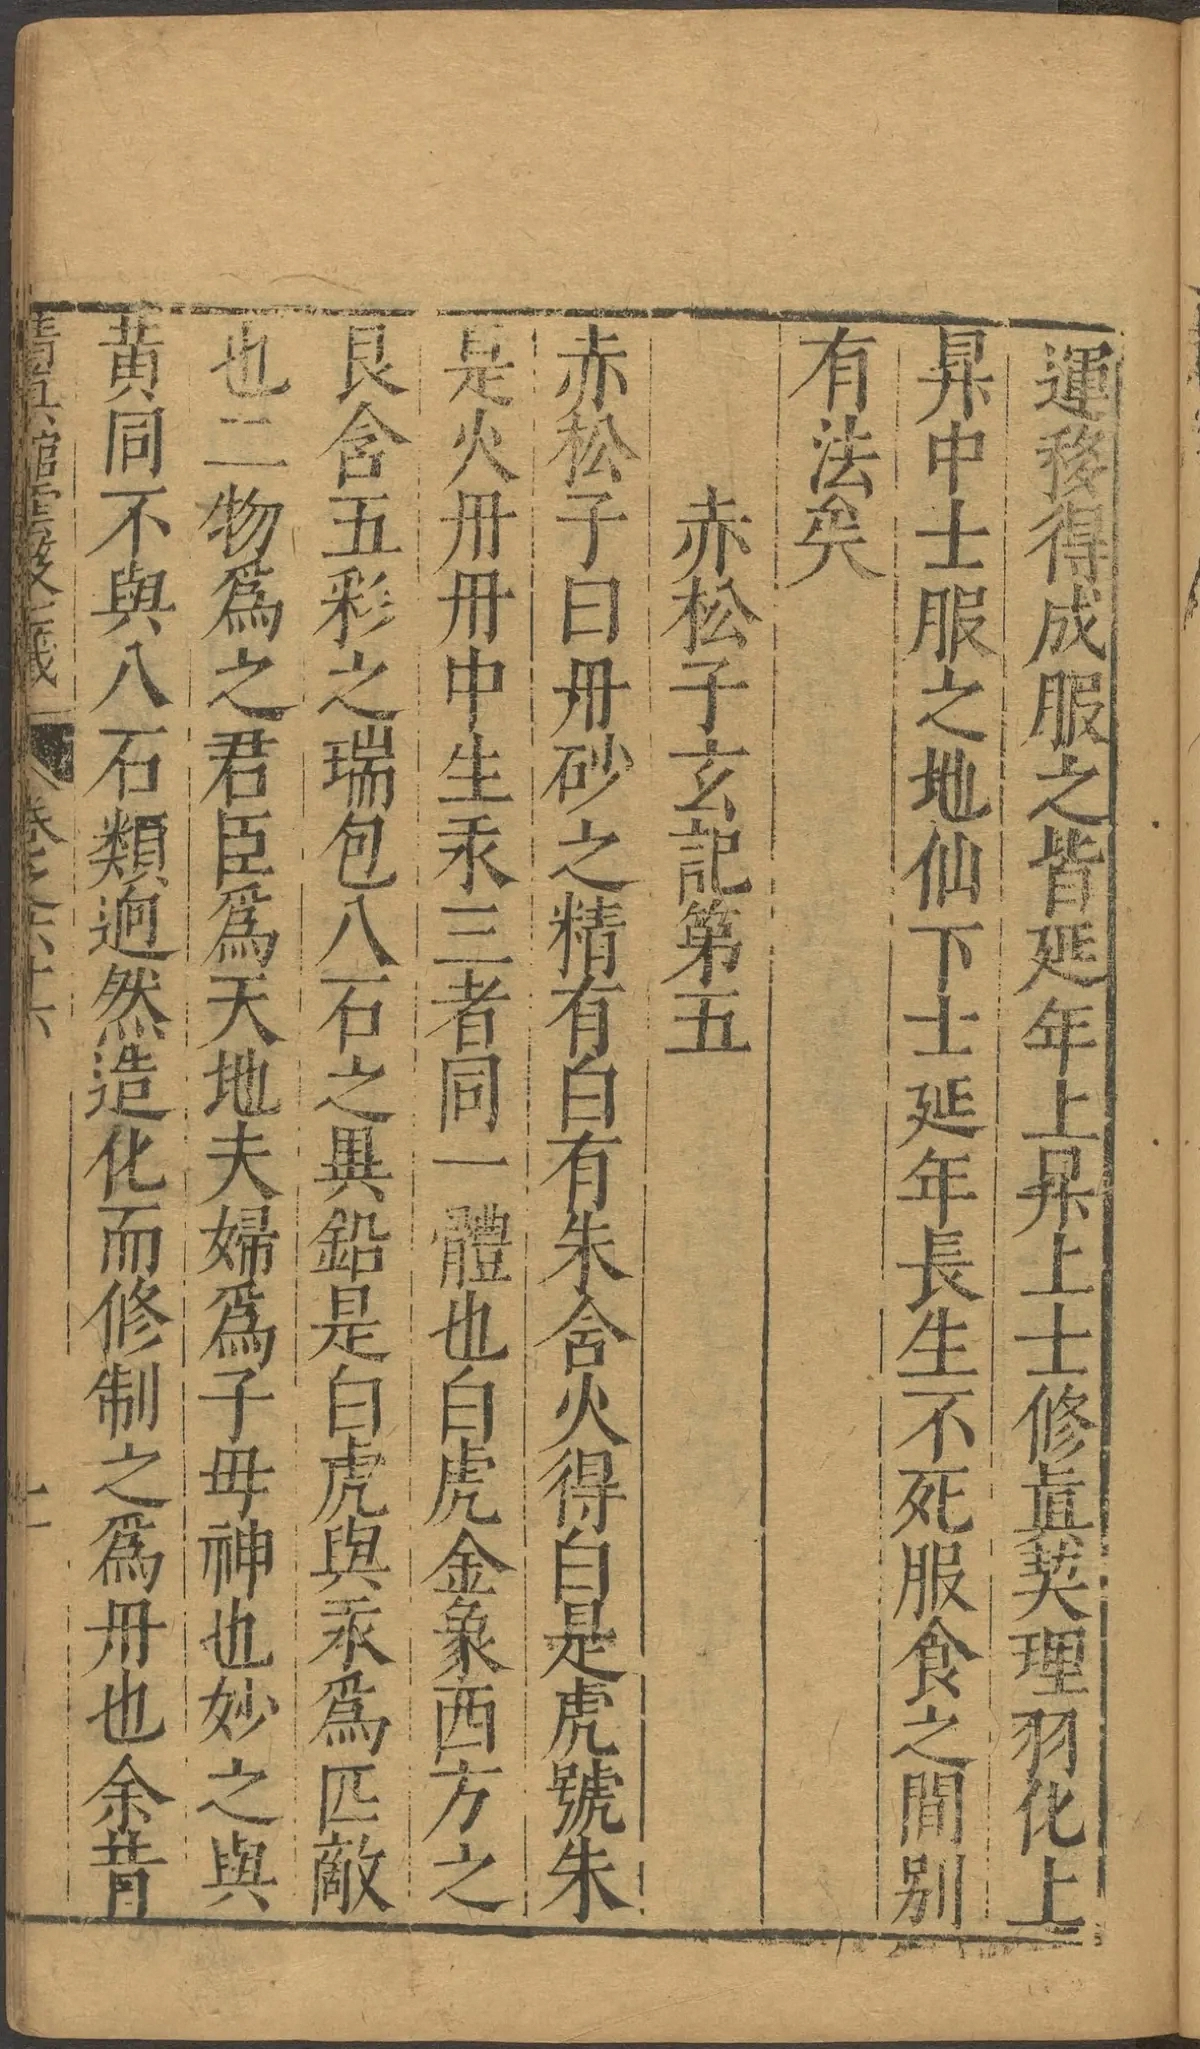 運移得成服之皆延年上昇上士修眞英理羽化上
昇中士服之地仙下士延年長生不死服食之間別
有法矣
赤松子玄記第五
赤松子曰丹砂之精有白有朱含火得白是虎號朱
是火丹丹中生汞三者同一體也白虎金象西方之
艮含五彩之瑞包八石之異鉛是白虎與汞爲匹敵
也二物爲之君臣爲天地夫婦爲子母神也妙之與
黃同不與八石類逈然造化而修制之爲丹也余昔
清眞館雲笈七籤 卷之六十六